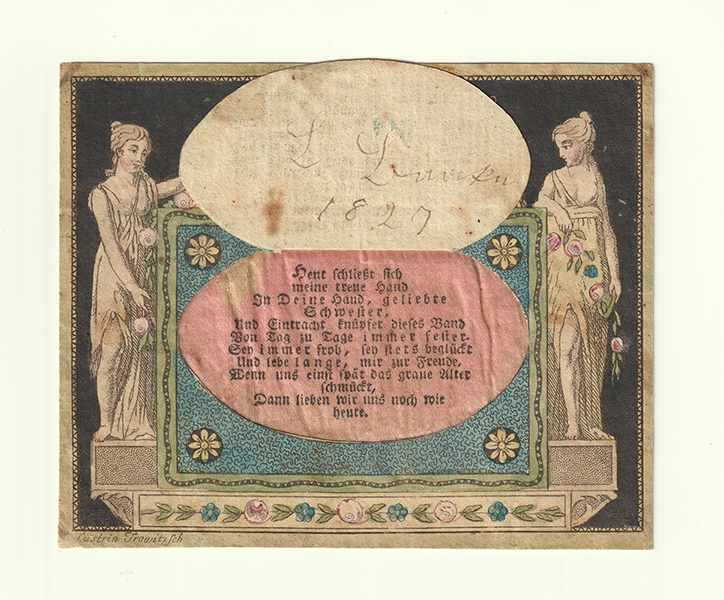 L
1827
Heut schließt sich
meine treue Hand
In Deine Hand, geliebte
Schwester,
Und Eintracht knüpfet dieses Band
Von Tag zu Tage immer fester.
Sey immer froh, sey stets beglückt
Und lebe lange, mir zur Freude.
Wenn uns einst spät das graue Alter
schmückt,
Dann lieben wir uns noch wie
heute.
Cüstrin Trowitzsch